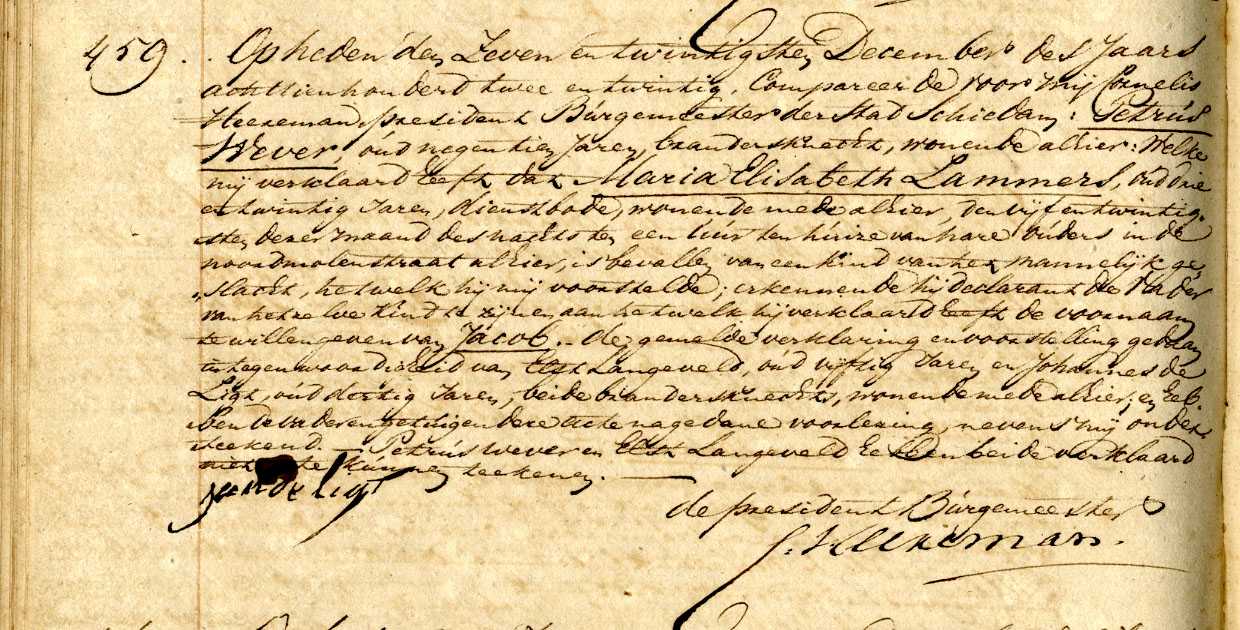 459. Op heden den Zeven en twintigsten December des Jaars
achttienhonderd twee en twintig, Compareerde voor mij Cornelis
Heereman, president Burgemeester der Stad Schiedam: Petrus
Wever, oud negentien Jaren, brandersknecht, wonende alhier: Welke
mij verklaard heeft dat Maria Elisabeth Lammers, oud drie
en twintig Jaren, dienstbode, wonende mede alhier, den vijf en twintig-
sten dezer maand des nachts ten een uur ten huize van hare ouders in de
noordmolenstraat alhier, is bevallen van een Kind van het mannelijk ge-
slacht, hetwelk hij mij voorstelde; erkennende hij declarant de Vader
van hetzelve Kind te zijn en aan hetwelk hij verklaard heeft de voornaam
te willen geven van Jacob. - de gemelde verklaring en voorstelling gedaan
in tegenwoordigheid van Langeveld, oud vijftig Jaren en Johannes de
Ligt, oud dertig Jaren, beide brandersknechts, wonende mede alhier; en heb-
ben de vader en getuigen deze acte na gedane voorlezing, nevens mij onder-
teekend. - Petrus Wever en Langeveld hebben beide verklaard
niet te kunnen teekenen.
Jan de ligt
de president Burgemeester
C. Heereman.